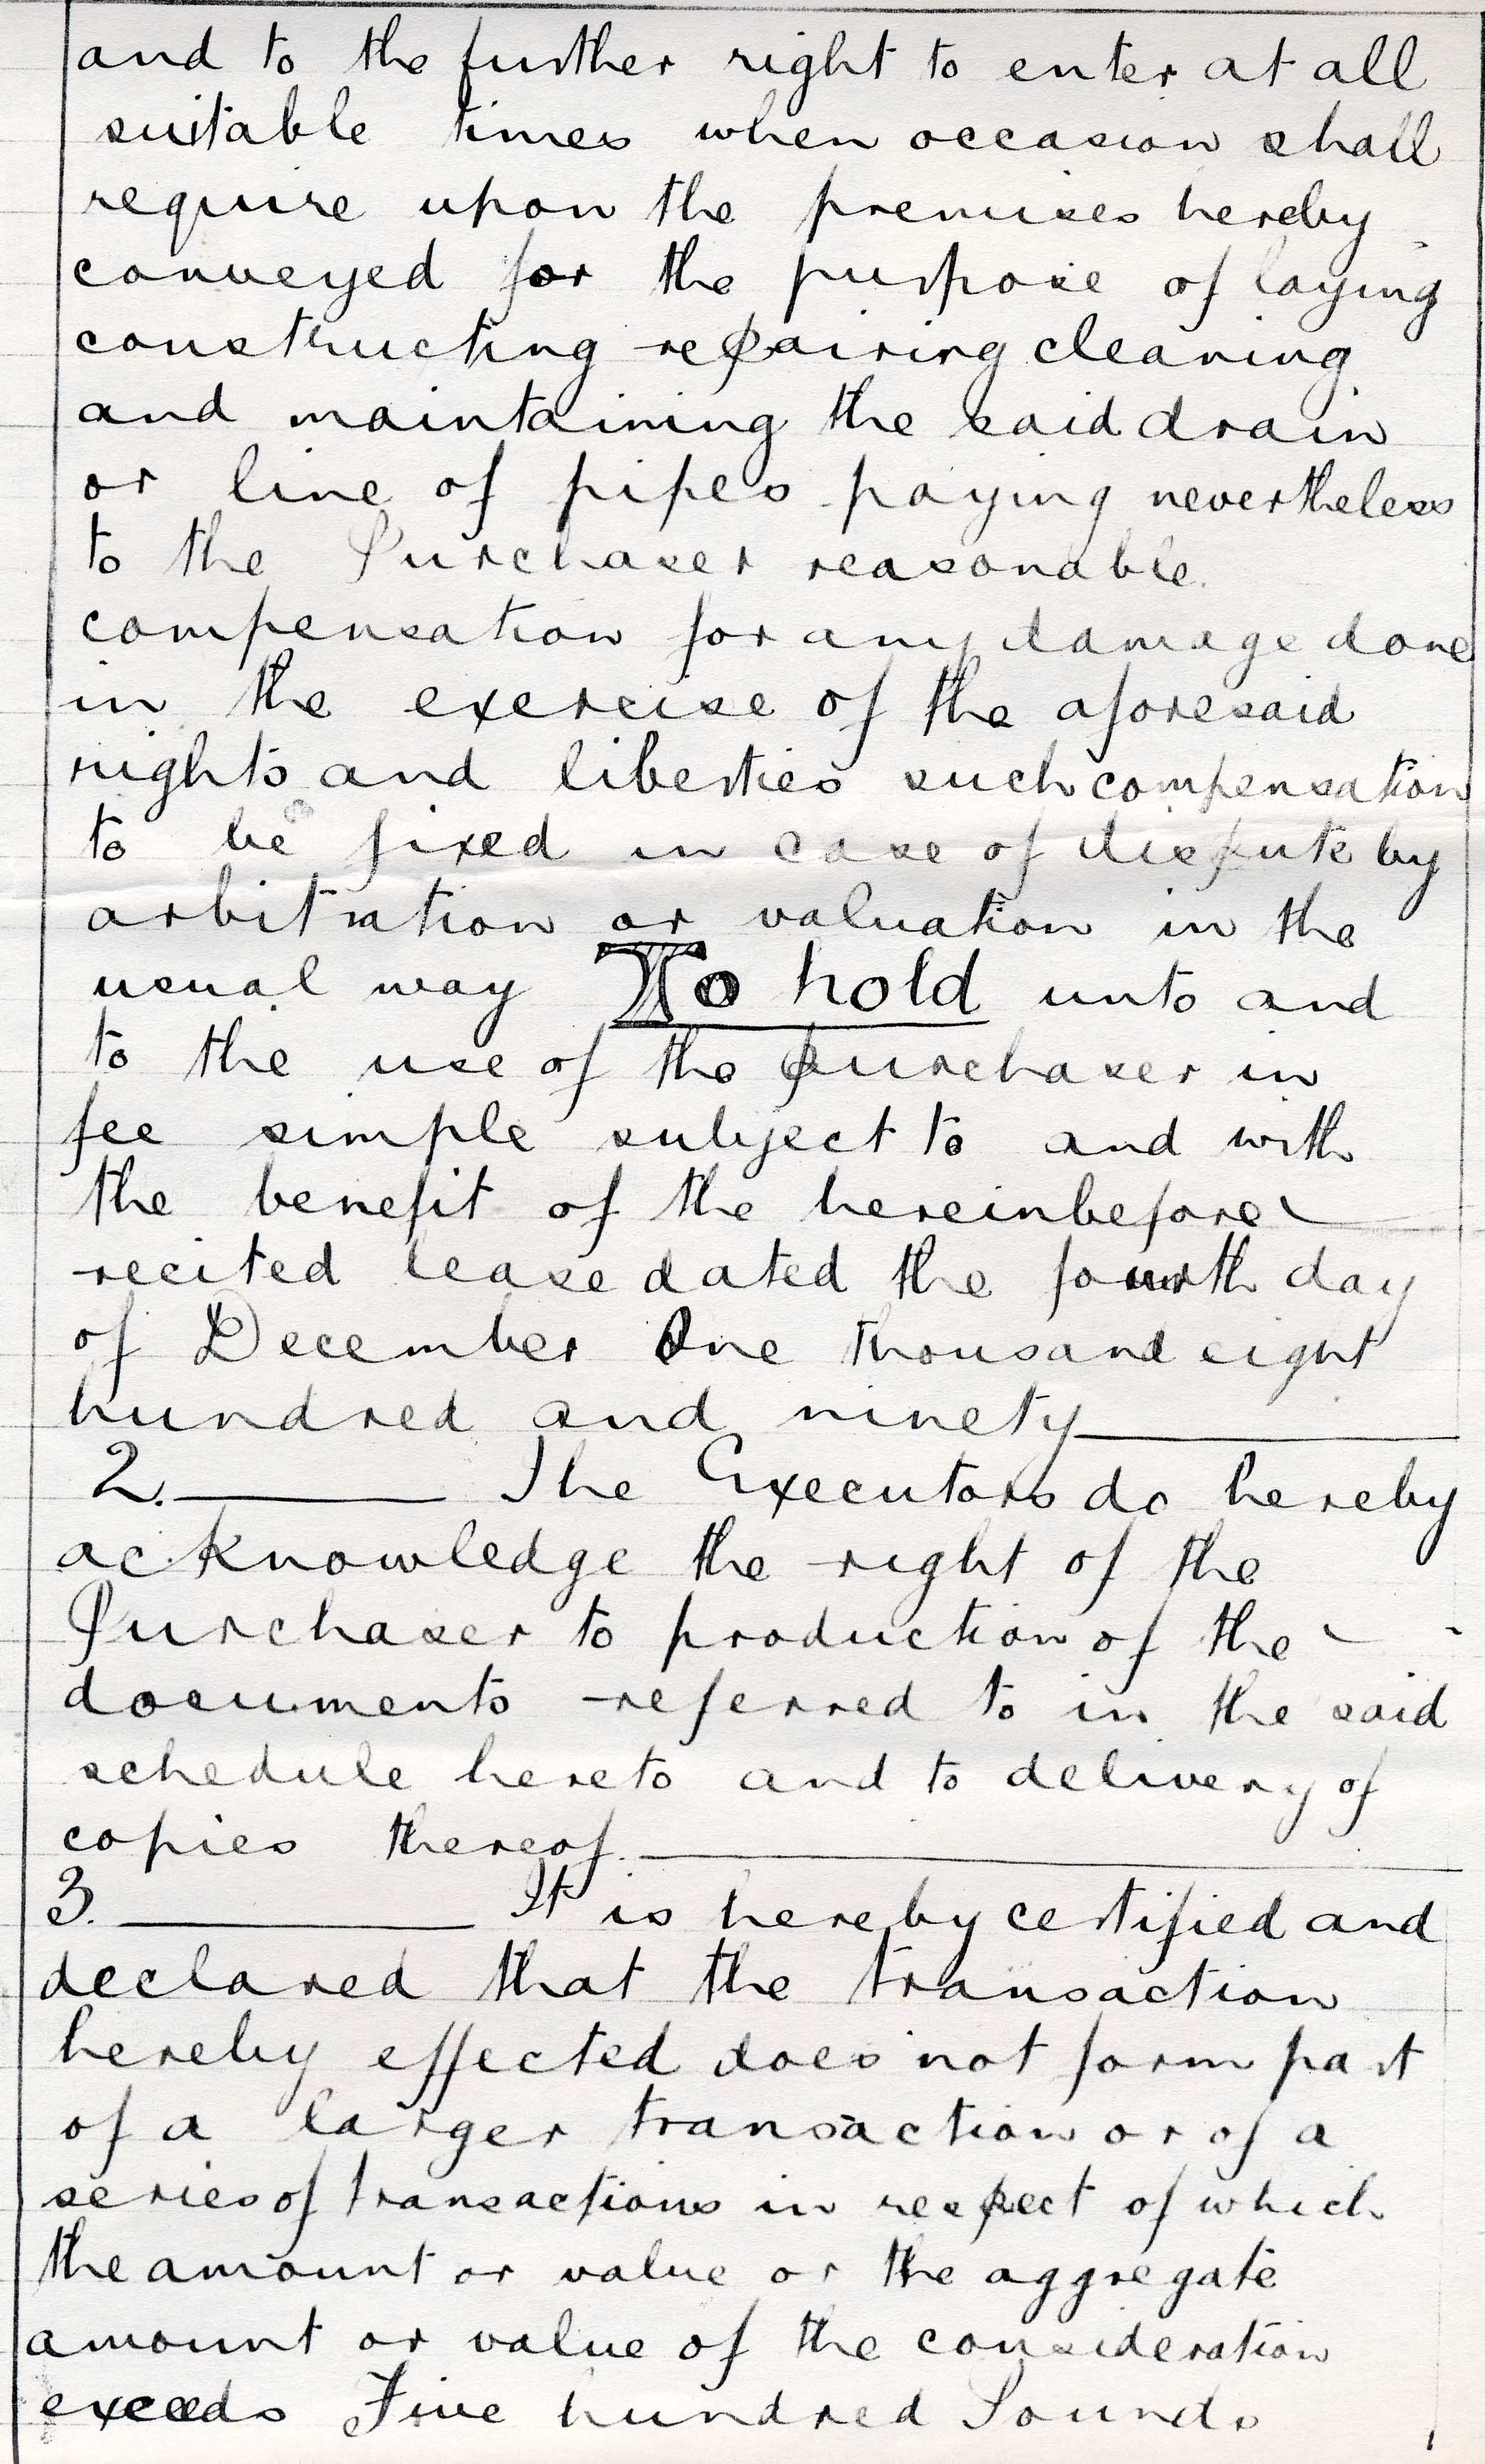 and to the further right to enter at all
suitable times when occasion shall
require upon the premises hereby
conveyed for the purpose of laying
constructing repairing cleaning
and maintaining the said drain
or line of pipes paying nevertheless
to the Purchaser reasonable
compensation for any damage done
in the exercise of the aforesaid
rights and liberties such compensation
to be fixed in case of dispute by
arbitration or valuation in the
usual way To hold unto and
to the use of the purchaser in
fee simple subject to and with
the benefit of the hereinbefore
recited lease dated the fourth day
of December One thousand eight
hundred and ninety
2. The Executors do hereby
acknowledge the right of the
Purchaser to production of the
documents referred to in the said
schedule hereto and to delivery of
copies thereof.
3. It is hereby certified and
declared that the transaction
hereby effected does not form part
of a larger transaction or of a
series of transactions in respect of which
the amount or value or the aggregate
amount or value of the consideration
exceeds Five hundred Pounds